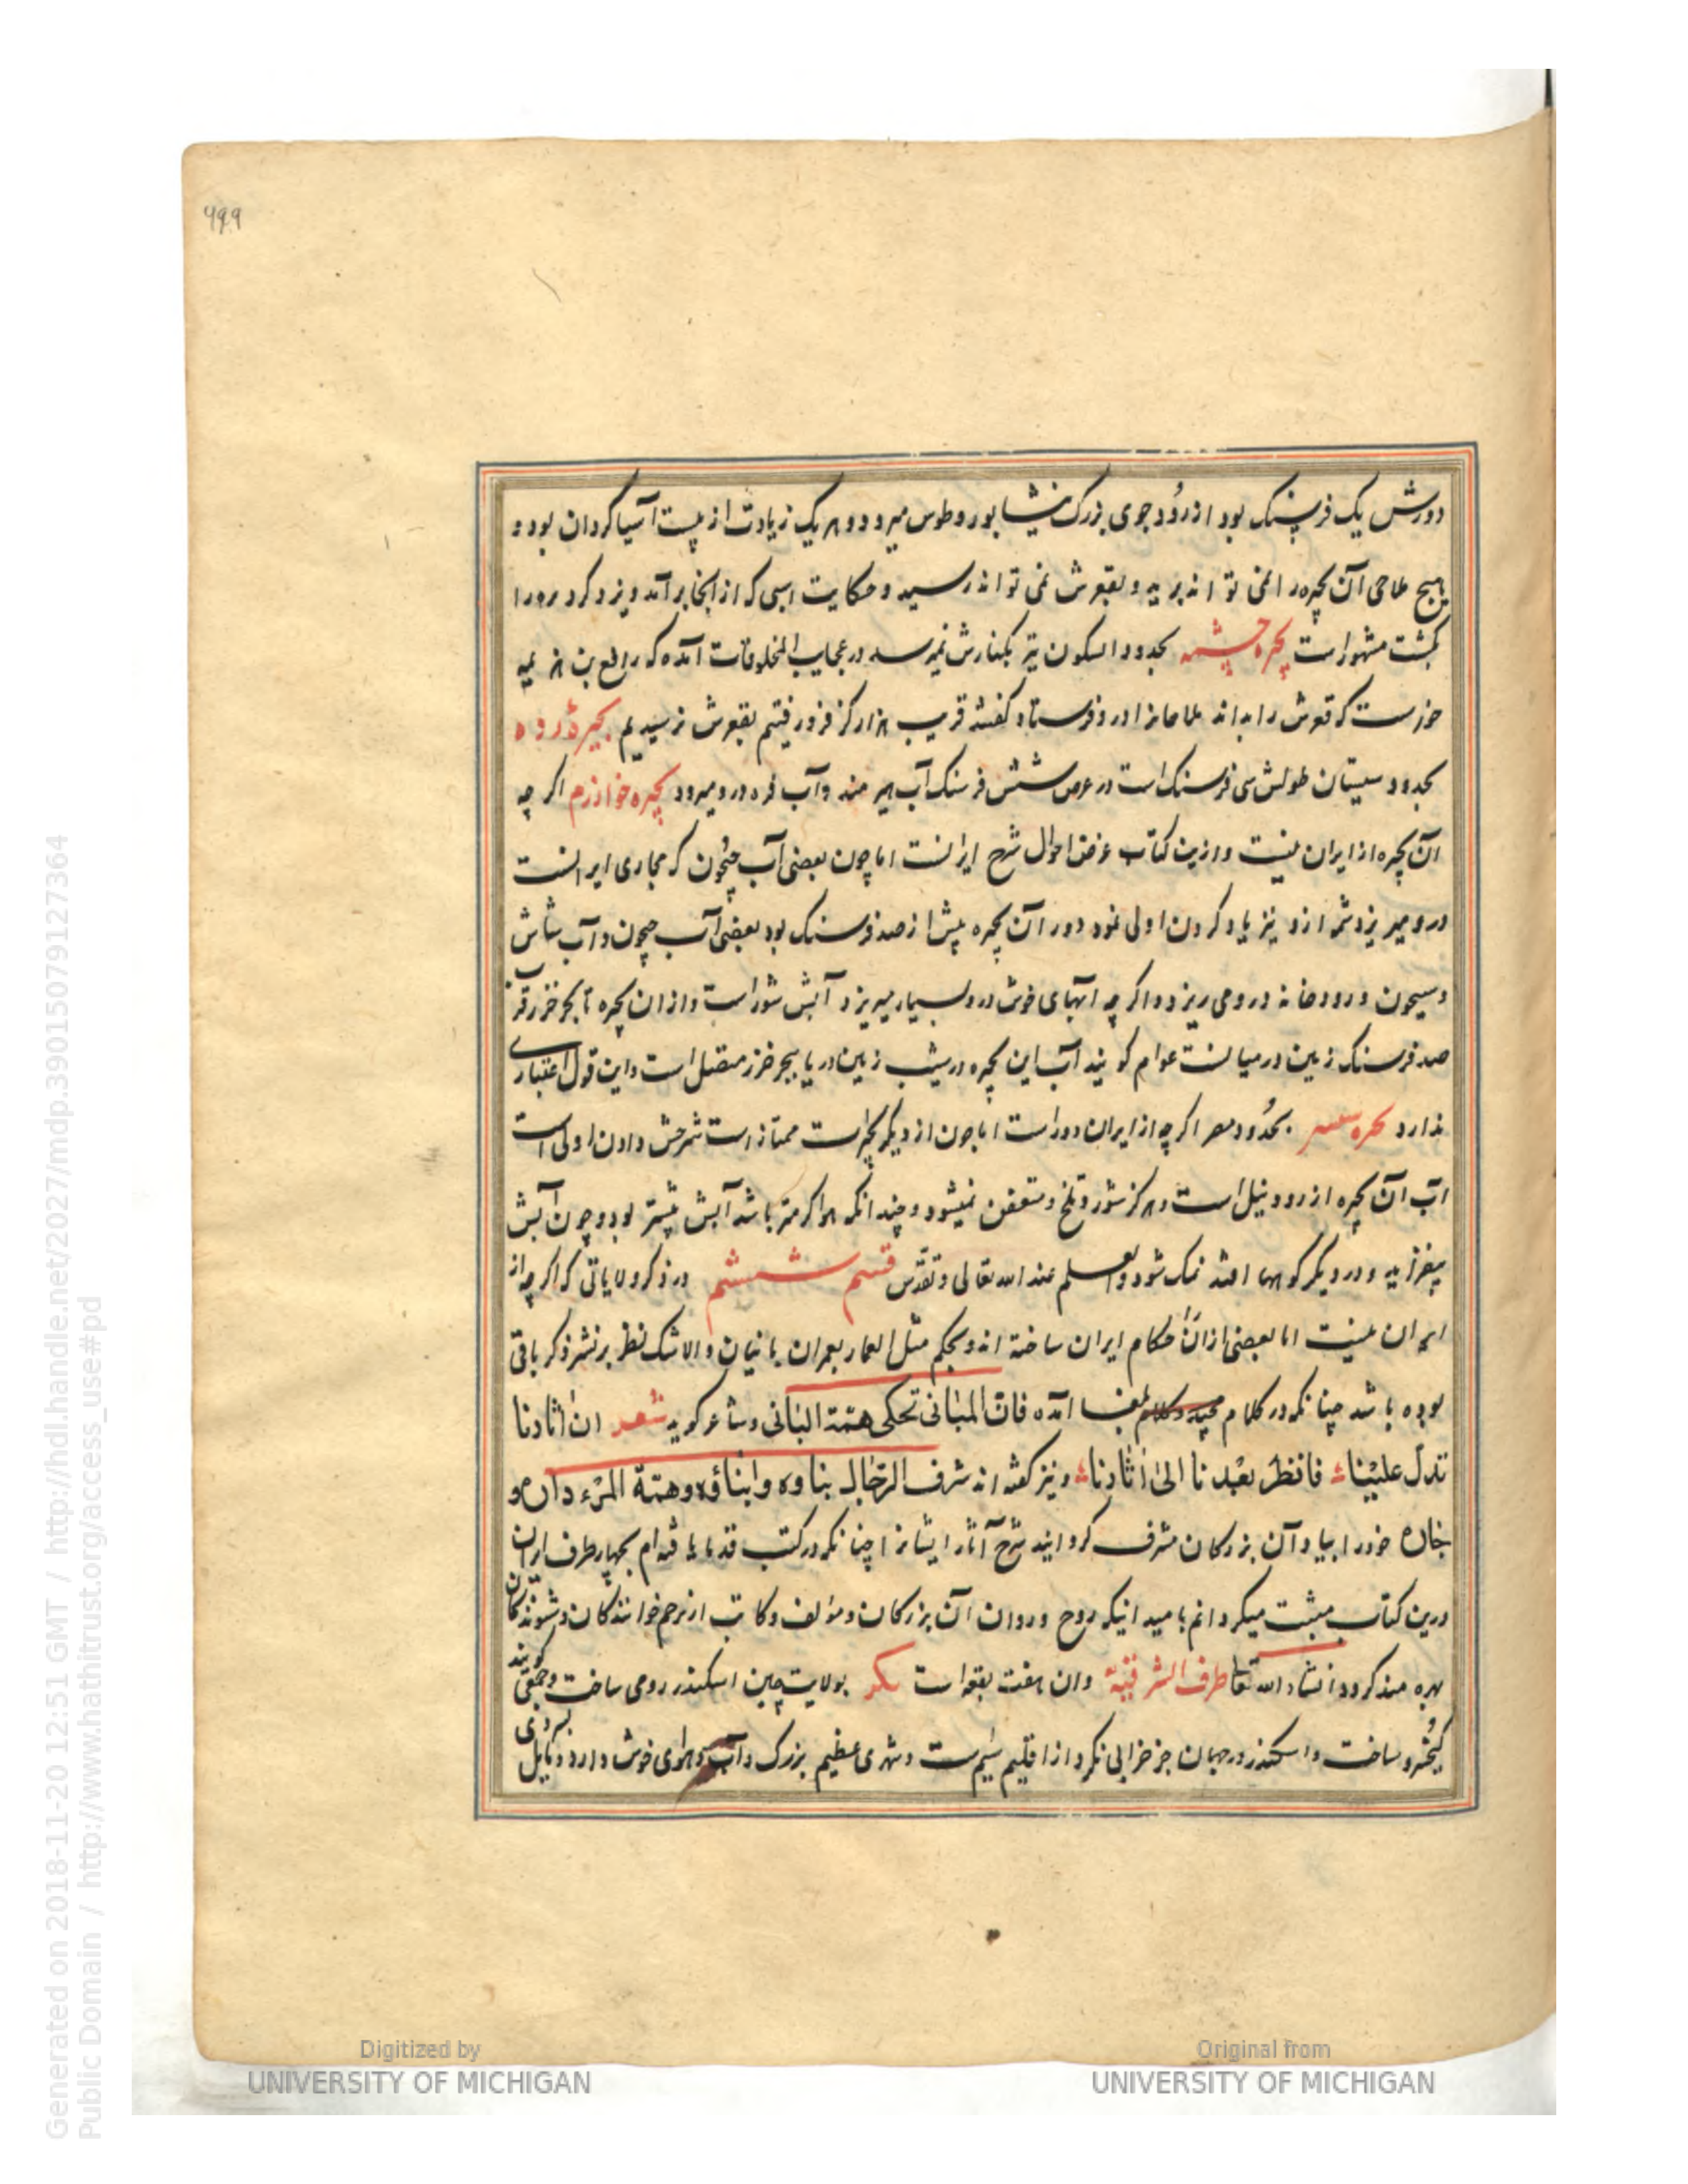 ۴۹۹
دورش یک فرسنک بود ازرود جوی بزرک نیشابور وطوس میرود و هر یک زیادت از بیست آسیا کردان بود و
هیچ ملاحی آن بحیره را نمی تواند برید و بقعرش نمی تواند رسید و حکایت اسبی که از انجا برآمد و یزد کرد
بکشت مشهور است بحیره چشمه بحدود السکون تیر بکنارش نمیرسد در عجایب المخلوقات آمده که رافع بن هرثمه
خواست که قعرش را بداند ملاحانرا درو فرستاد کفتند قریب هزار کز فرو رفتیم بقعرش نرسیدیم بحیره زره
بحدود سیستان طولش سی فرسنک است در عرض شش فرسنک آب هیرمند وآب فره درو میرود بحیره خوارزم اکر چه
آن بحیره از ایران نیست وازین کتاب غرض احوال شرح ایرانست اما چون بعضی آب جیحون که مجاری ایرانست
درو میریزد شمه ازو نیز یاد کردن اولی نمود دور آن بحیره بیش از صد فرسنک بود بعضی آب جیحون وآب شاش
وسیحون و رودخانه درو می ریزد واکر چه ابهای خوش درو بسیار میریزد آبش شور است وازان بحیره تا بحر خزر قرب
صد فرسنک زمین درمیانست عوام کویند آب این بحیره در شیب زمین دریا ببحر خزر متصل است واین قول اعتباری
ندارد بحیره بحدود مصر اکر چه از ایران دور است اما چون از دیکر بحیرات ممتاز است شرحش دادن اولی است
آب آن بحیره از رود نیل است وهرکز شور وتلخ ومتعفن نمیشود وچندانکه هوا کرمتر باشد آبش بیشتر بود وچون آبش
بیفزاید و در دیکر کوبها افتد نمک شود والعلم عند الله تعالی وتقدس قسم ششم در ذکر ولایاتی که اکر چه از
ایران نیست اما بعضی ازان حکام ایران ساخته اند وبحکم مثل العمار بعمران بانیان والا شک نظر برنشر ذکر باقی
بوده باشد چنانکه در کلام آمده فان المبانی تحکی همة البانی وشاعر کوید شعر ان اثارنا
تدل علینا فانظر بعدنا الی اثارنا ونیز کفته اند شرف الرجال بناوه وابناؤه وهمة المرء داره و
خان خود را بیاد آن بزرکان مشرف کردانید شرح آثار ایشانرا چنانکه در کتب قدما یافته ام بچهار طرف ایران
درین کتاب مثبت میکردانم بامید انیکه روح وروان آن بزرکان ومؤلف وکاتب از ترحم خوانندکان وشنوندکان
بهره مند کردد انشاء الله تعا طرف الشرقیة وان هفت بقعه است بولایت چین اسکندر رومی ساخت وجمعی کویند
کیخسرو ساخت واسکندر در جهان جز خرابی نکرد از اقلیم سیم است وشهری عظیم بزرک وآب وهوای خوش دارد ومایل بسردی
Generated on 2018-11-20 12:51 GMT / http://hdl.handle.net/2027/mdp.39015079127364
Public Domain / http://www.hathitrust.org/access_use#pd
Digitized by
UNIVERSITY OF MICHIGAN
Original from
UNIVERSITY OF MICHIGAN